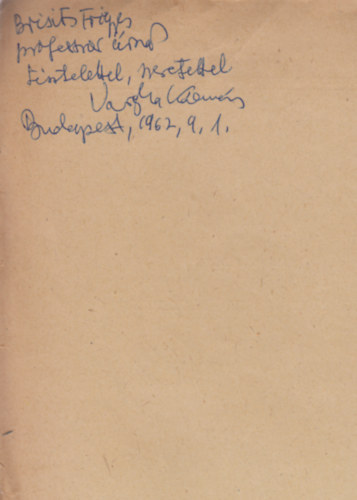 Brisits Frigyes
professor úrnak
tisztelettel, szeretettel
Vargha Kálmán
Budapest, 1962, 9. 1.